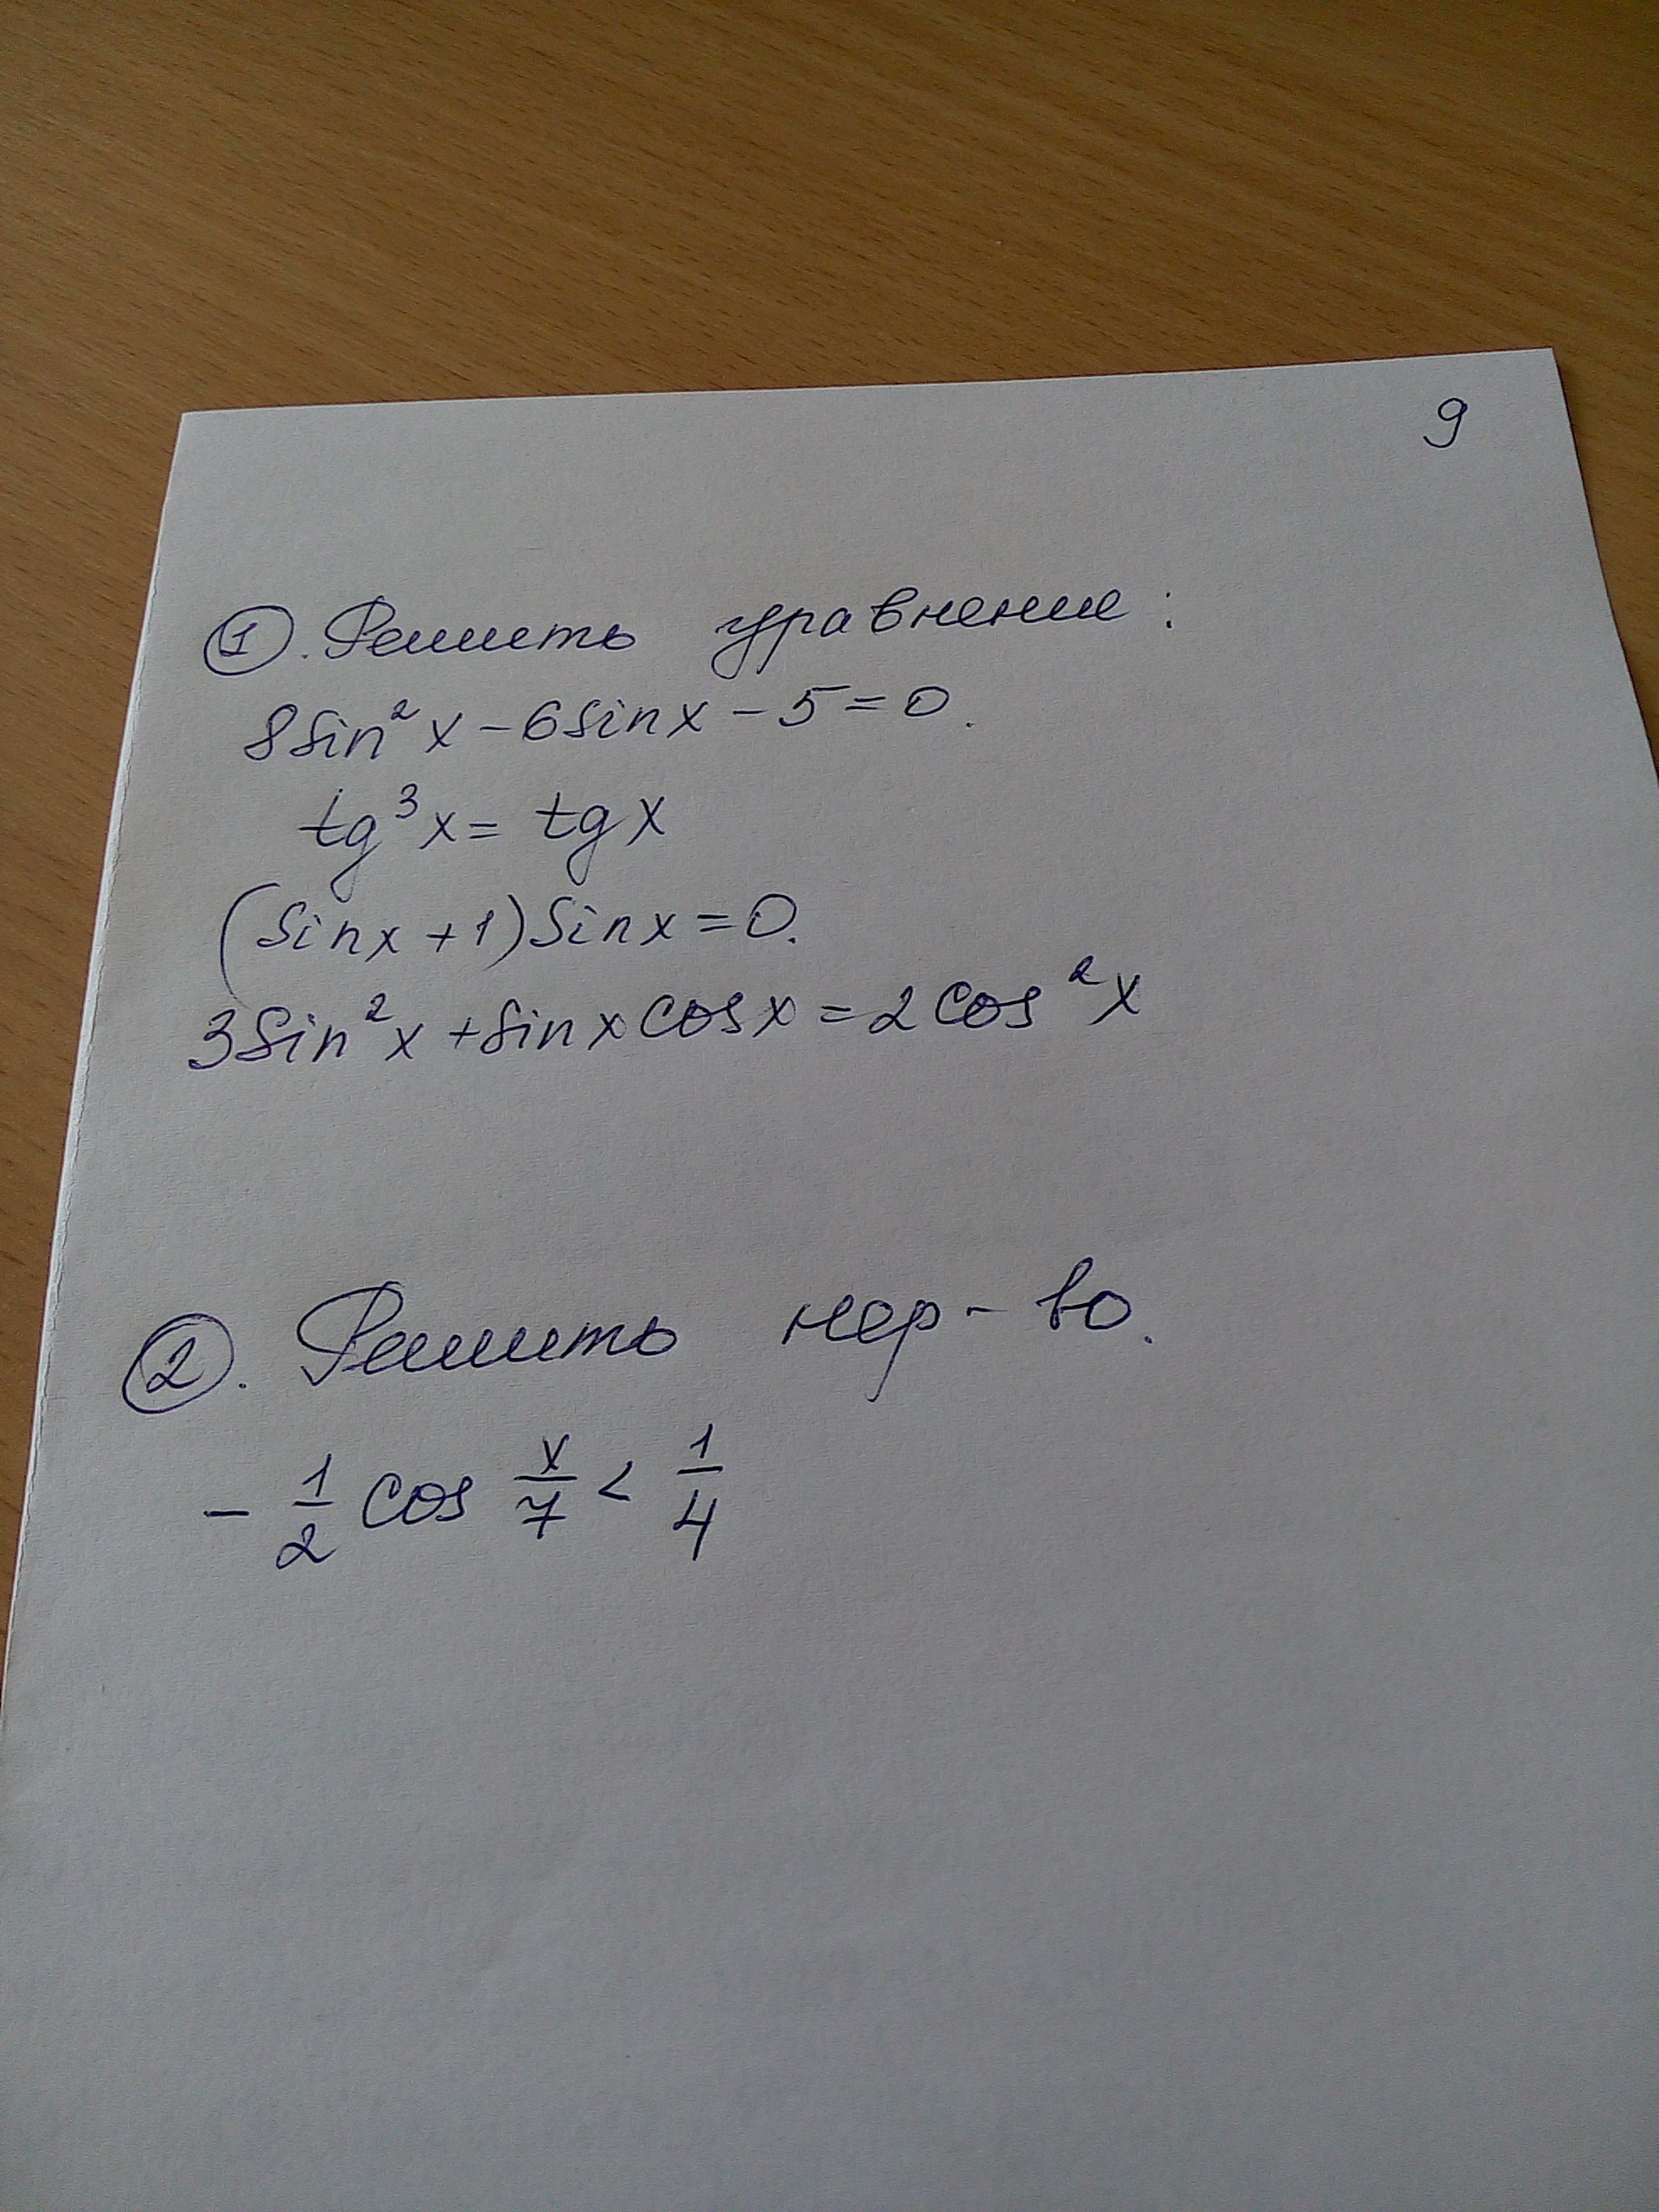 9
①. Решить уравнение:
8sin²x - 6sinx - 5 = 0.
tg³x = tgx
(sinx + 1)sinx = 0.
3sin²x + sinx cosx = 2cos²x
②. Решить нер-во.
- 1/2 cos x/7 < 1/4